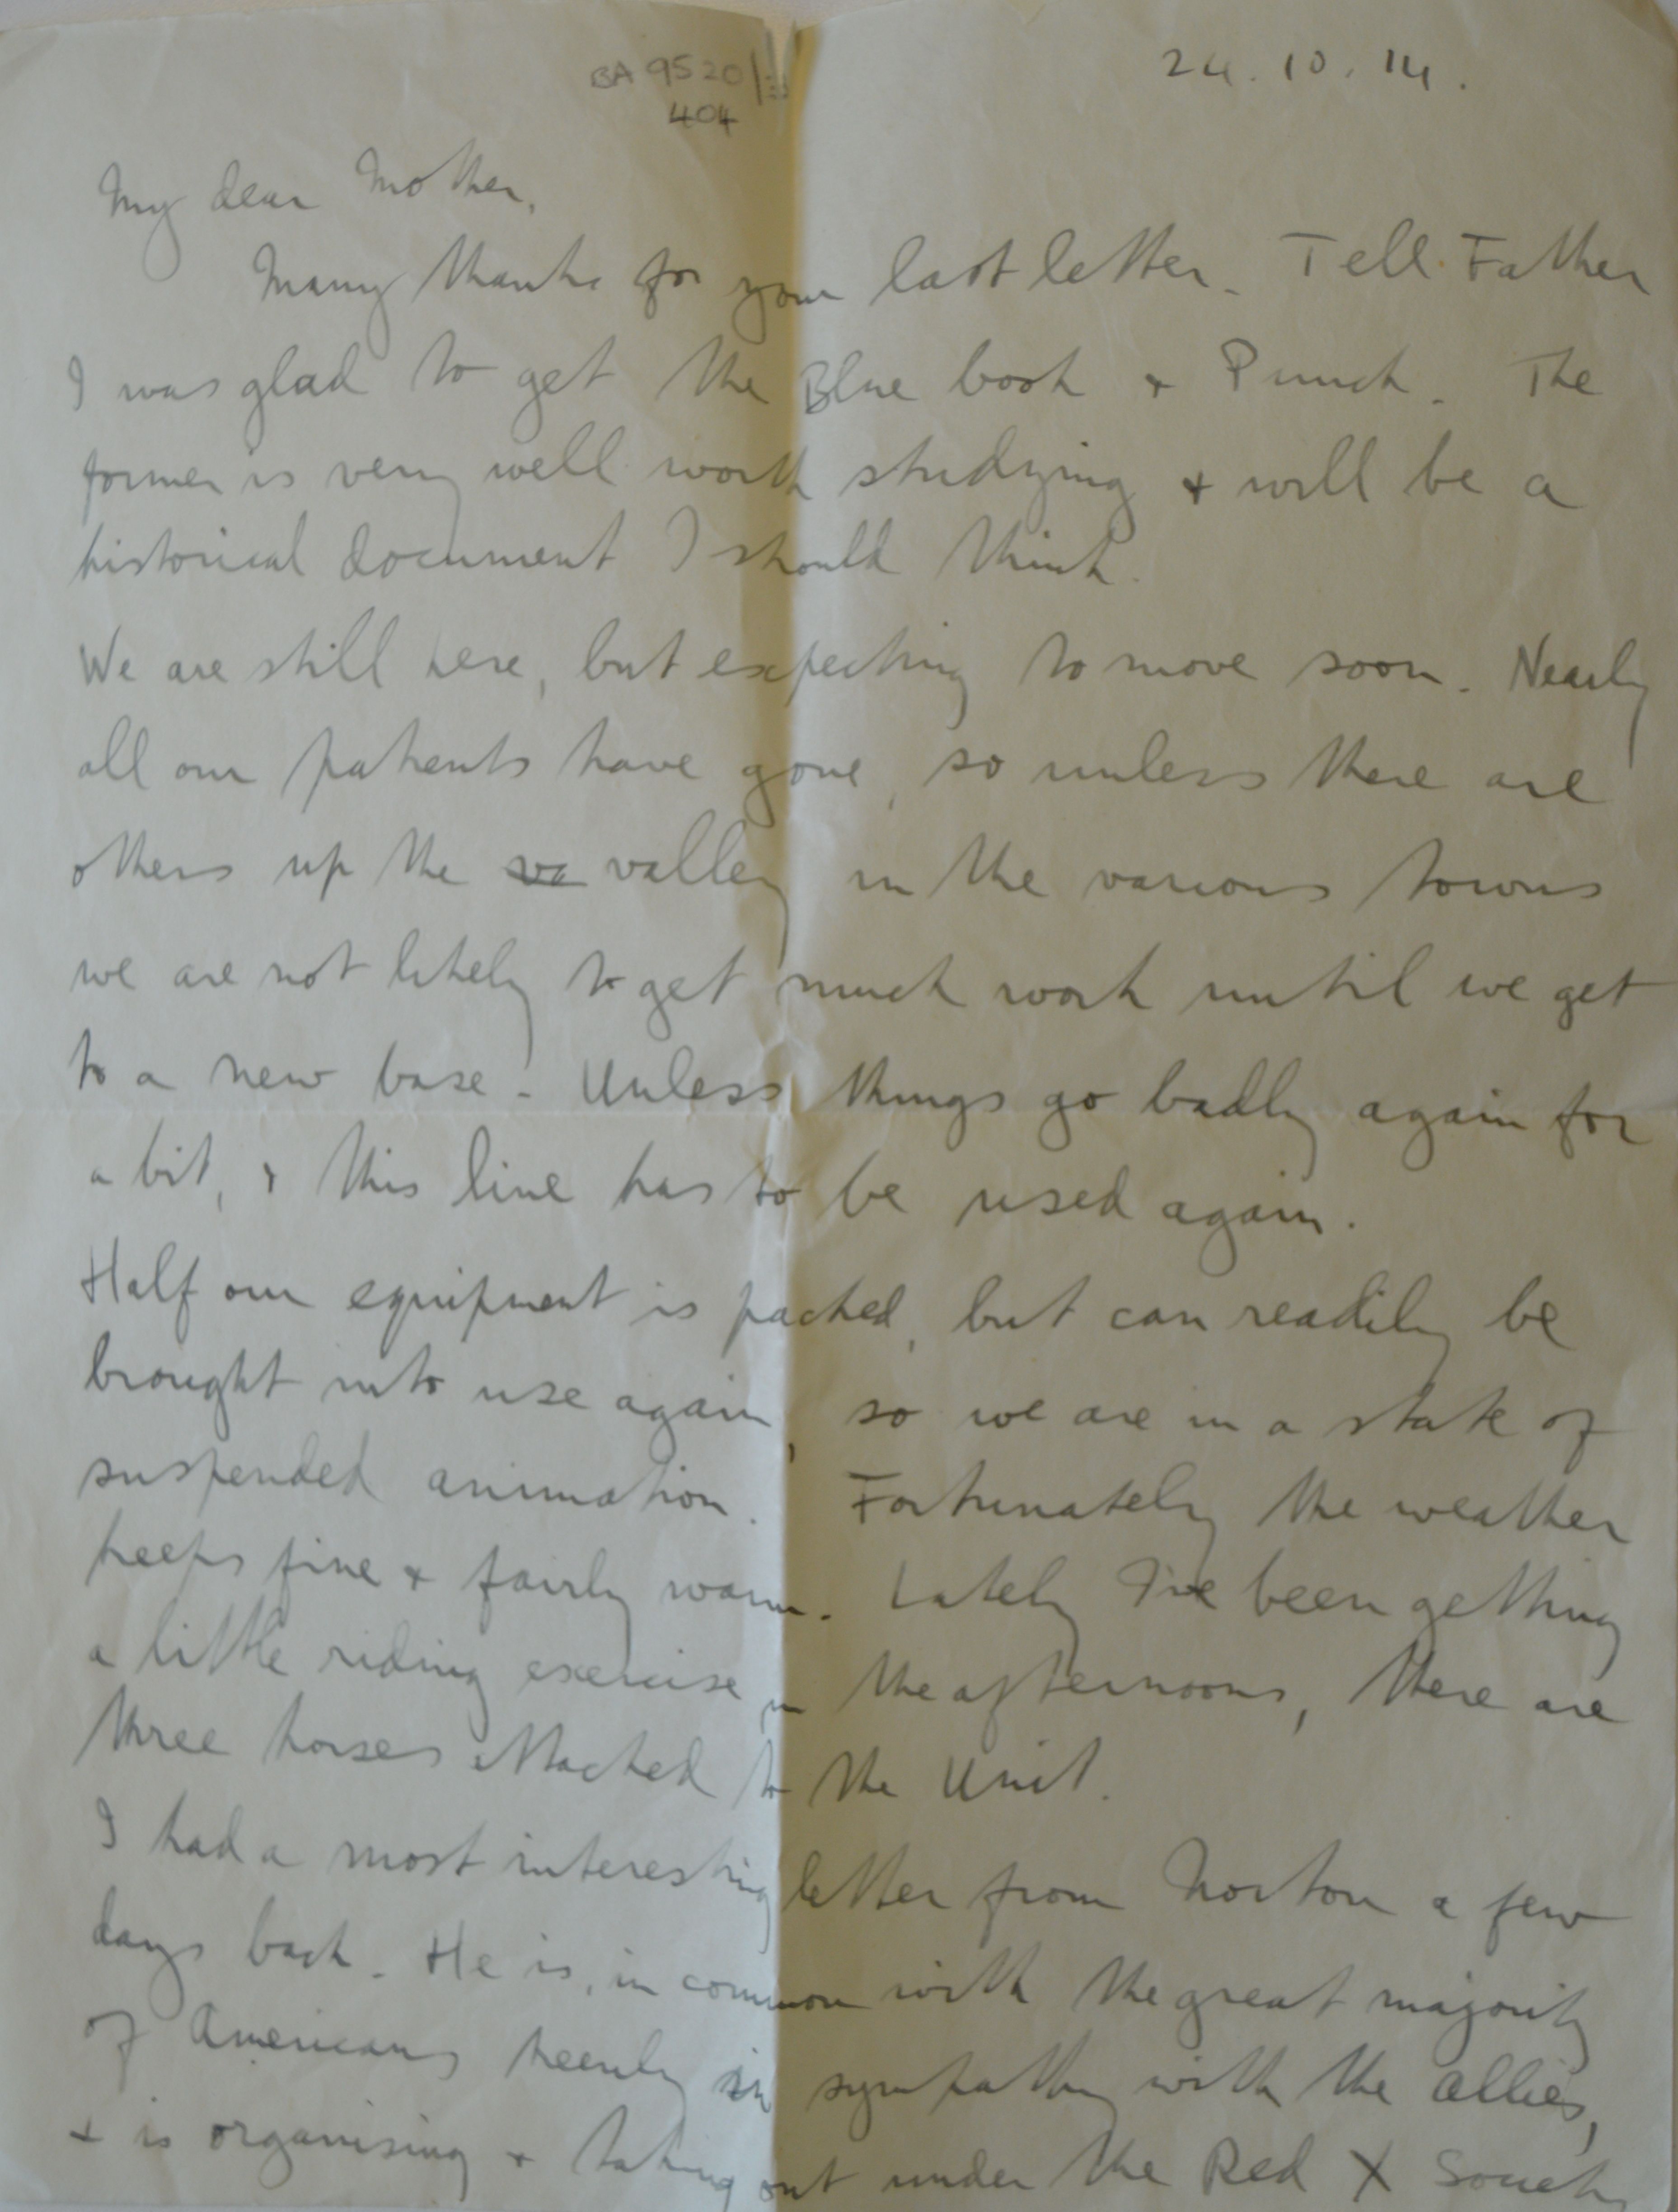 BA 9520
404
24.10.14.
My dear Mother,
Many thanks for your last letter. Tell Father
I was glad to get the Blue book + Punch. The
former is very well worth studying + will be a
historical document I should think.
We are still here, but expecting to move soon. Nearly
all our patients have gone, so unless there are
others up the va valley in the various towns
we are not likely to get much work until we get
to a new base. Unless things go badly again for
a bit, + this line has to be used again.
Half our equipment is packed, but can readily be
brought into use again, so we are in a state of
suspended animation. Fortunately the weather
keeps fine + fairly warm. Lately I've been getting
a little riding exercise in the afternoons, there are
three horses attached to the Unit.
I had a most interesting letter from Norton a few
days back. He is, in common with the great majority
of Americans keenly in sympathy with the allies,
+ is organising + taking out under the Red X Society